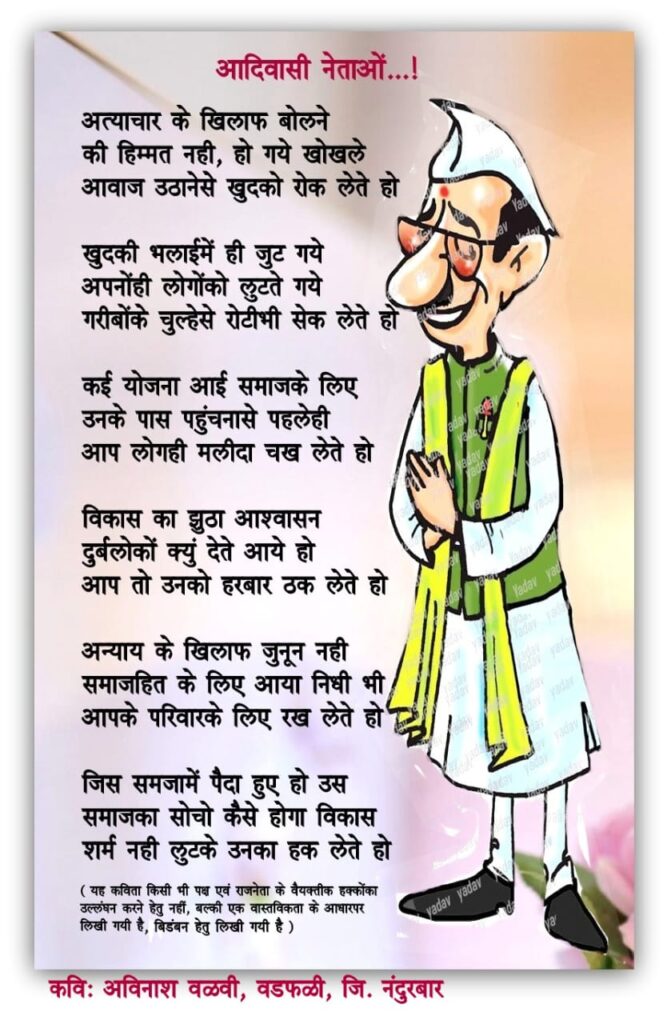 आदिवासी नेताओं...!
अत्याचार के खिलाफ बोलने
की हिम्मत नही, हो गये खोखले
आवाज उठानेसे खुदको रोक लेते हो
खुदकी भलाईमें ही जुट गये
अपनोंही लोगोंको लुटते गये
गरीबोंके चुल्हेसे रोटीभी सेक लेते हो
कई योजना आई समाजके लिए
उनके पास पहुंचनासे पहलेही
आप लोगही मलीदा चख लेते हो
विकास का झुठा आश्वासन
दुर्बलोकों क्युं देते आये हो
आप तो उनको हरबार ठक लेते हो
अन्याय के खिलाफ जुनून नही
समाजहित के लिए आया निधी भी
आपके परिवारके लिए रख लेते हो
जिस समजामें पैदा हुए हो उस
समाजका सोचो कैसे होगा विकास
शर्म नही लुटके उनका हक लेते हो
( यह कविता किसी भी पक्ष एवं राजनेता के वैयक्तीक हक्कोंका
उल्लंघन करने हेतु नहीं, बल्की एक वास्तविकता के आधारपर
लिखी गयी है, बिडंबन हेतु लिखी गयी है )
कवि: अविनाश वळवी, वडफळी, जि. नंदुरबार
yadav